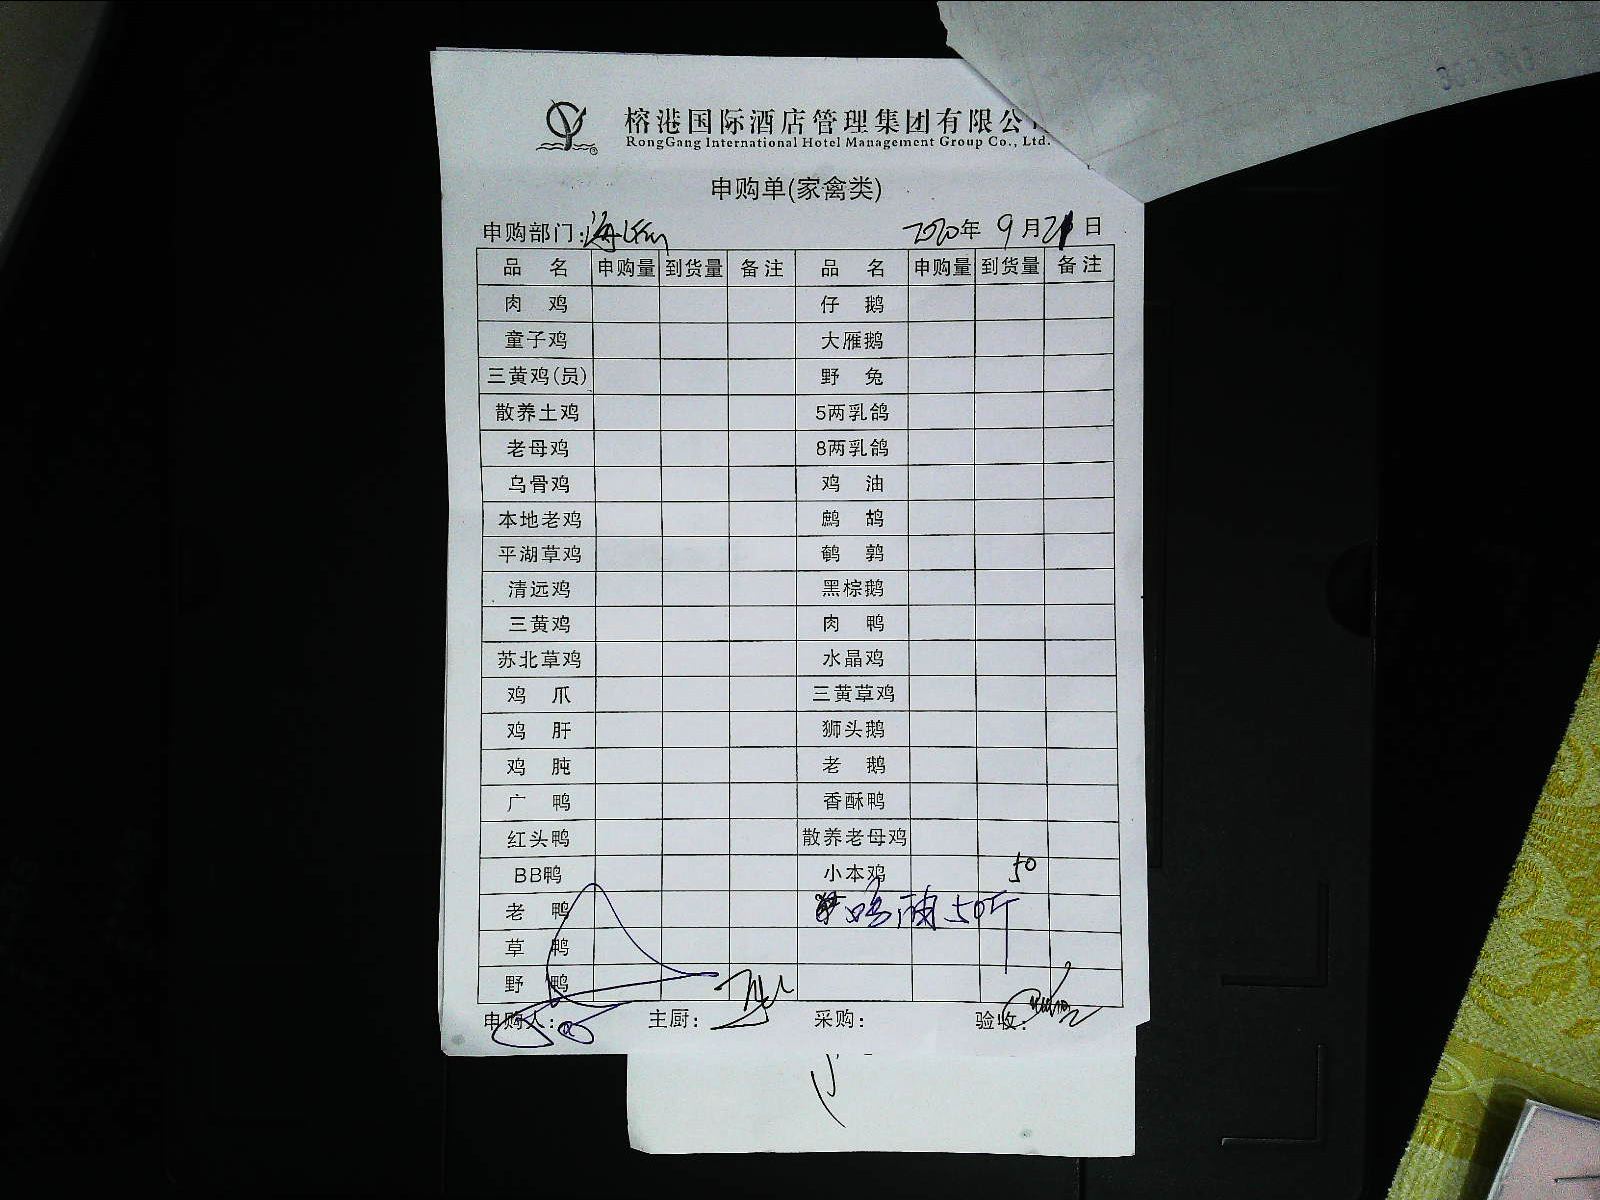 榕港国际酒店管理集团有限公
RongGang International Hotel Management Group Co., Ltd.
申购单(家禽类)
申购部门: 2020年 9月21日
品 名 申购量 到货量 备注 品 名 申购量 到货量 备注
肉 鸡 仔 鹅
童子鸡 大雁鹅
三黄鸡(员) 野 兔
散养土鸡 5两乳鸽
老母鸡 8两乳鸽
乌骨鸡 鸡 油
本地老鸡 鹧 鸪
平湖草鸡 鹌 鹑
清远鸡 黑棕鹅
三黄鸡 肉 鸭
苏北草鸡 水晶鸡
鸡 爪 三黄草鸡
鸡 肝 狮头鹅
鸡 肫 老 鹅
广 鸭 香酥鸭
红头鸭 散养老母鸡
BB鸭 小本鸡 50
老 鸭 50斤
草 鸭
野 鸭
申购人: 主厨: 采购: 验收: